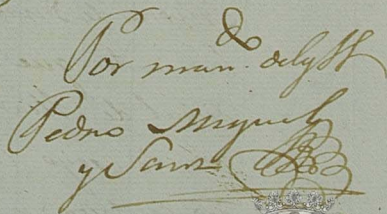 Por man.do del S.
Pedro Miguel
y Sanz